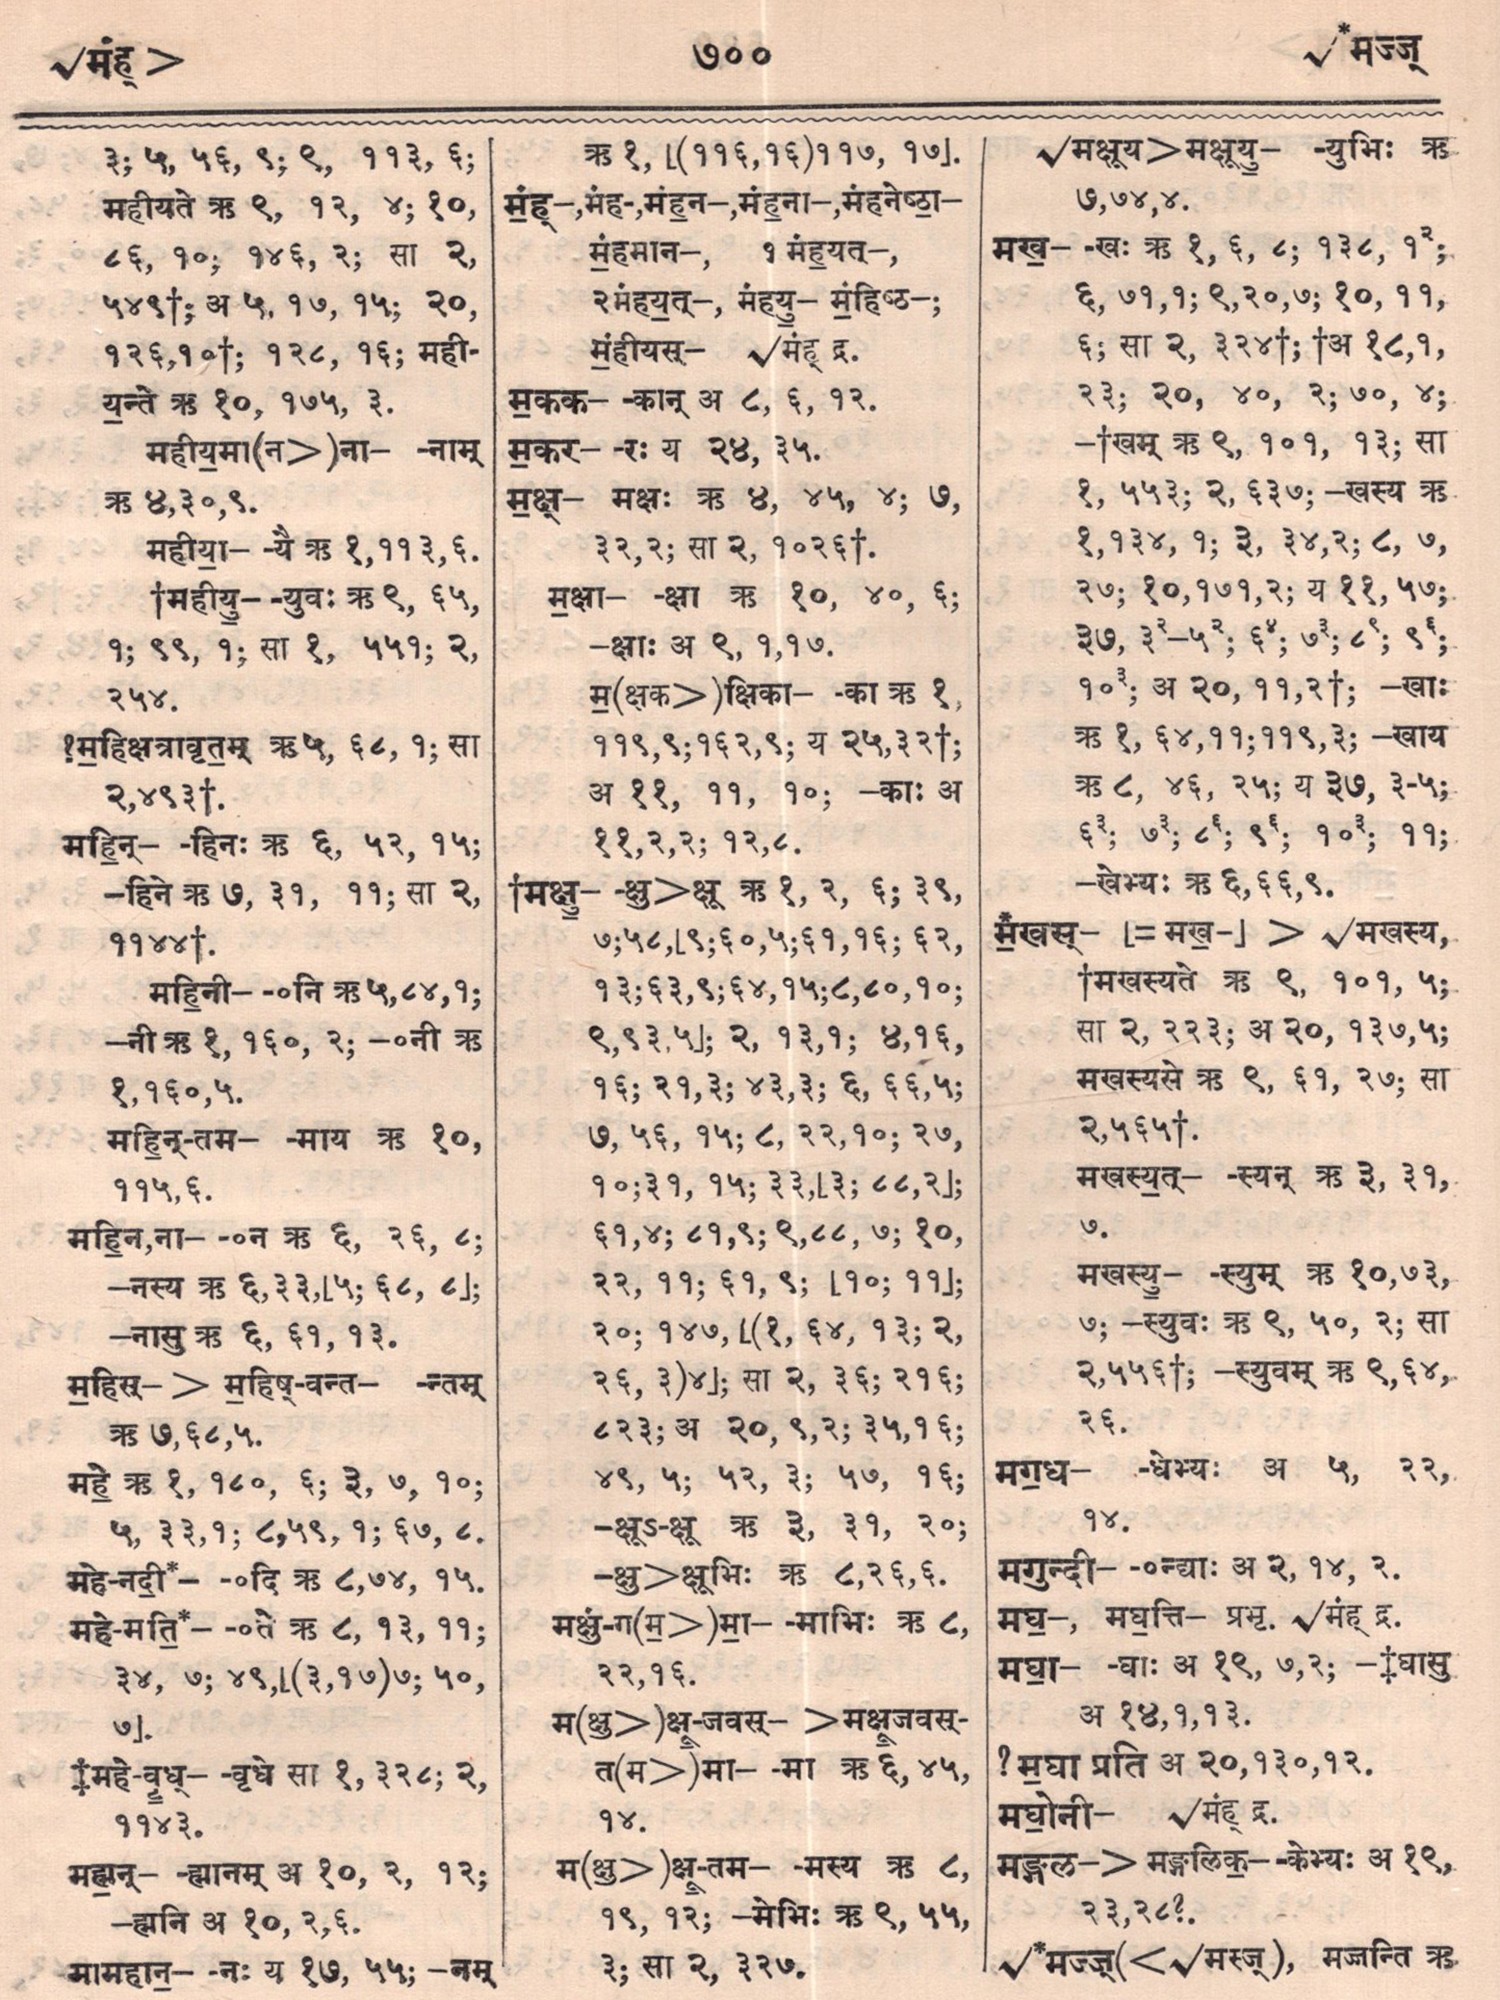 √मंह् >
७००
√*मज्ज्
३; ५, ५६, ९; ९, ११३, ६;
महीयते ऋ ९, १२, ४; १०,
८६, १०; १४६, २; सा २,
५४९†; अ ५, १७, १५; २०,
१२६,१०†; १२८, १६; मही-
य॒न्ते ऋ १०, १७५, ३.
महीय॒मा(न>)ना– -नाम्
ऋ ४,३०,९.
महीया॒– -यै ऋ १,११३,६.
†महीयु॒– -युवः ऋ ९, ६५,
१; ९९, १; सा १, ५५१; २,
२५४.
?म॒हिक्षत्रावृत॒म् ऋ ५, ६८, १; सा
२,४९३†.
महि॒न्– -हिनः ऋ ६, ५२, १५;
–हिने ऋ ७, ३१, ११; सा २,
११४४†.
महि॒नी– -०नि ऋ ५,८४,१;
–नी ऋ १, १६०, २; –०नी ऋ
१,१६०,५.
महि॒न्-तम– -माय ऋ १०,
११५,६.
महि॒न,ना– -०न ऋ ६, २६, ८;
–नस्य ऋ ६,३३,⌊५; ६८, ८⌋;
–नासु ऋ ६, ६१, १३.
म॒हिस्– > म॒हिष्-वन्त– -न्तम्
ऋ ७,६८,५.
महे॒ ऋ १, १८०, ६; ३, ७, १०;
५, ३३,१; ८,५९, १; ६७, ८.
महे-नदी॒*– -०दि ऋ ८,७४, १५.
महे-मति॒*– -०ते ऋ ८, १३, ११;
३४, ७; ४९,⌊(३,१७)७; ५०,
७⌋.
‡महे-वृ॒ध्– -वृधे सा १, ३२८; २,
११४३.
मह्म॒न्– -ह्मानम् अ १०, २, १२;
–ह्मनि अ १०, २,६.
मामहान॒– -नः य १७, ५५; –नम्
ऋ १, ⌊(११६,१६)११७, १७⌋.
मं॒ह्–,मंह-,मंह॒न–,मंह॒ना–,मंहनेष्ठा॒–
मं॒हमान–, १ मंह॒यत्–,
२मंहय॒त्–, मंहयु॒– मं॒हिष्ठ–;
मं॒हीयस्– √मंह् द्र.
म॒कक– -कान् अ ८, ६, १२.
म॒कर– -रः य २४, ३५.
म॒क्ष्– मक्षः ऋ ४, ४५, ४; ७,
३२,२; सा २, १०२६†.
म॒क्षा– -क्षा ऋ १०, ४०, ६;
–क्षाः अ ९, १,१७.
म॒(क्षक>)क्षिका– -का ऋ १,
११९,९;१६२,९; य २५,३२†;
अ ११, ११, १०; –काः अ
११,२,२; १२,८.
†मक्षु॒– -क्षु>क्षू ऋ १, २, ६; ३९,
७;५८,⌊९;६०,५;६१,१६; ६२,
१३;६३,९;६४,१५;८,८०,१०;
९,९३,५⌋; २, १३,१; ४,१६,
१६; २१,३; ४३,३; ६, ६६,५;
७, ५६, १५; ८, २२,१०; २७,
१०;३१, १५; ३३,⌊३; ८८,२⌋;
६१,४; ८१,९; ९,८८, ७; १०,
२२, ११; ६१, ९; ⌊१०; ११⌋;
२०; १४७, ⌊(१, ६४, १३; २,
२६, ३)४⌋; सा २, ३६; २१६;
८२३; अ २०, ९,२; ३५,१६;
४९, ५; ५२, ३; ५७, १६;
–क्षूऽ-क्षू ऋ ३, ३१, २०;
–क्षु>क्षूभिः ऋ ८,२६,६.
मक्षुं-ग(म॒>)मा॒– -माभिः ऋ ८,
२२,१६.
म(क्षु>)क्षू॒-जवस्– >मक्षू॒जवस्-
त(म>)मा– -मा ऋ ६, ४५,
१४.
म(क्षु>)क्षू॒-तम– -मस्य ऋ ८,
१९, १२; –मेभिः ऋ ९, ५५,
३; सा २, ३२७.
√मक्षूय>मक्षूयु॒– -युभिः ऋ
७,७४,४.
मख॒– -खः ऋ १, ६, ८; १३८, १²;
६, ७१,१; ९,२०,७; १०, ११,
६; सा २, ३२४†; †अ १८,१,
२३; २०, ४०, २; ७०, ४;
–†खम् ऋ ९, १०१, १३; सा
१, ५५३; २, ६३७; –खस्य ऋ
१,१३४, १; ३, ३४,२; ८, ७,
२७; १०,१७१,२; य ११, ५७;
३७, ३²–५²; ६⁴; ७³; ८⁹; ९⁶;
१०³; अ २०, ११,२†; –खाः
ऋ १, ६४,११;११९,३; –खाय
ऋ ८, ४६, २५; य ३७, ३-५;
६³; ७³; ८⁶; ९⁶; १०³; ११;
–खेभ्यः ऋ ६,६६,९.
म॒*खस्– ⌊= मख॒-⌋ > √मखस्य,
†मखस्यते ऋ ९, १०१, ५;
सा २, २२३; अ २०, १३७,५;
मखस्यसे ऋ ९, ६१, २७; सा
२,५६५†.
मखस्य॒त्– -स्यन् ऋ ३, ३१,
७.
मखस्यु॒– -स्युम् ऋ १०,७३,
७; –स्युवः ऋ ९, ५०, २; सा
२,५५६†; –स्युवम् ऋ ९,६४,
२६.
मग॒ध– -धेभ्यः अ ५, २२,
१४.
मगुन्दी– -०न्द्याः अ २, १४, २.
मघ॒–, मघ॒त्ति– प्रभृ. √मंह् द्र.
मघा॒– -घाः अ १९, ७,२; –‡घासु
अ १४,१,१३.
?म॒घा प्रति अ २०,१३०,१२.
मघो॒नी– √मंह् द्र.
मङ्गल–> मङ्गलिक॒– -केभ्यः अ १९,
२३,२८?.
√*मज्ज्(<√मस्ज्), मज्जन्ति ऋ